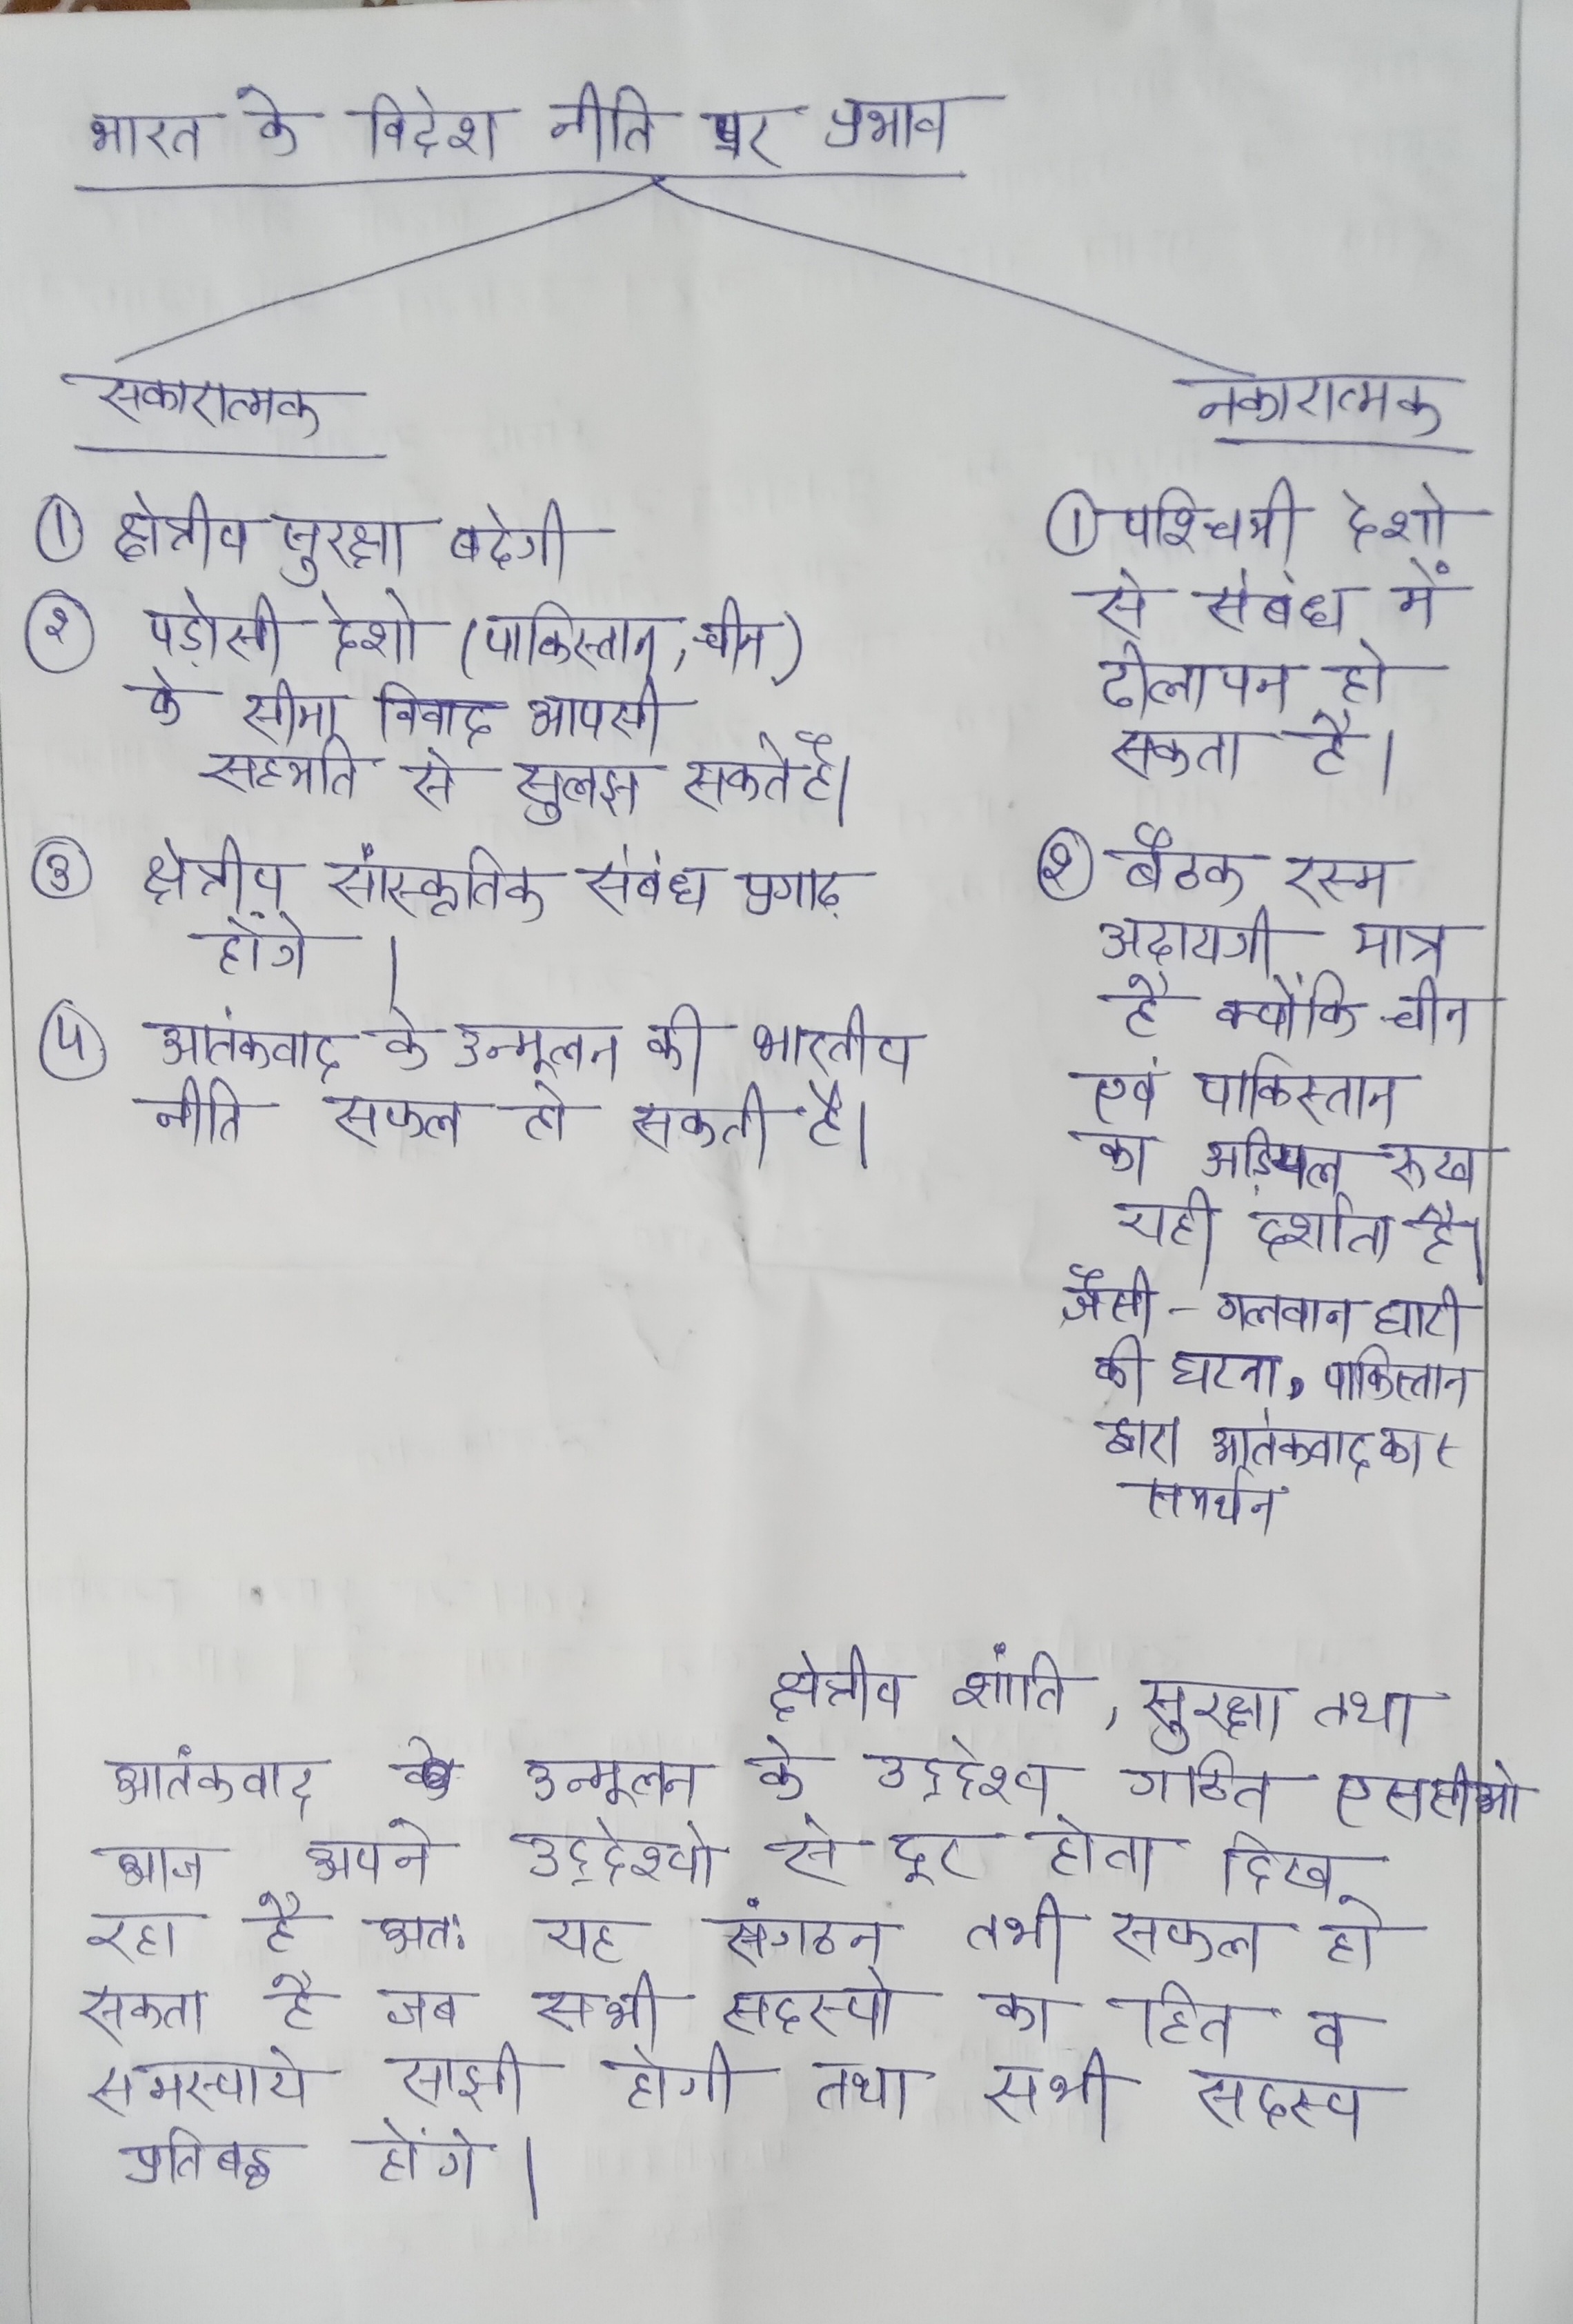 भारत के विदेश नीति पर प्रभाव
सकारात्मक
① क्षेत्रीय सुरक्षा बढेगी
② पड़ोसी देशो (पाकिस्तान, चीन)
के सीमा विवाद आपसी
सहमति से सुलझ सकते है।
③ क्षेत्रीय सांस्कृतिक संबंध प्रगाढ़
होंगे ।
④ आतंकवाद के उन्मूलन की भारतीय
नीति सफल हो सकती है।
नकारात्मक
① पश्चिमी देशो
से संबंध में
ढीलापन हो
सकता है।
② बैठक रस्म
अदायगी मात्र
है क्योंकि चीन
एवं पाकिस्तान
का अड़ियल रुख
यही दर्शाता है।
जैसी - गलवान घाटी
की घटना, पाकिस्तान
द्वारा आतंकवाद का
समर्थन
क्षेत्रीय शांति, सुरक्षा तथा
आतंकवाद के उन्मूलन के उद्देश्य गठित एससीओ
आज अपने उद्देश्यो से दूर होता दिख
रहा है अतः यह संगठन तभी सफल हो
सकता है जब सभी सदस्यो का हित व
समस्याये साझी होगी तथा सभी सदस्य
प्रतिबद्ध होंगे ।